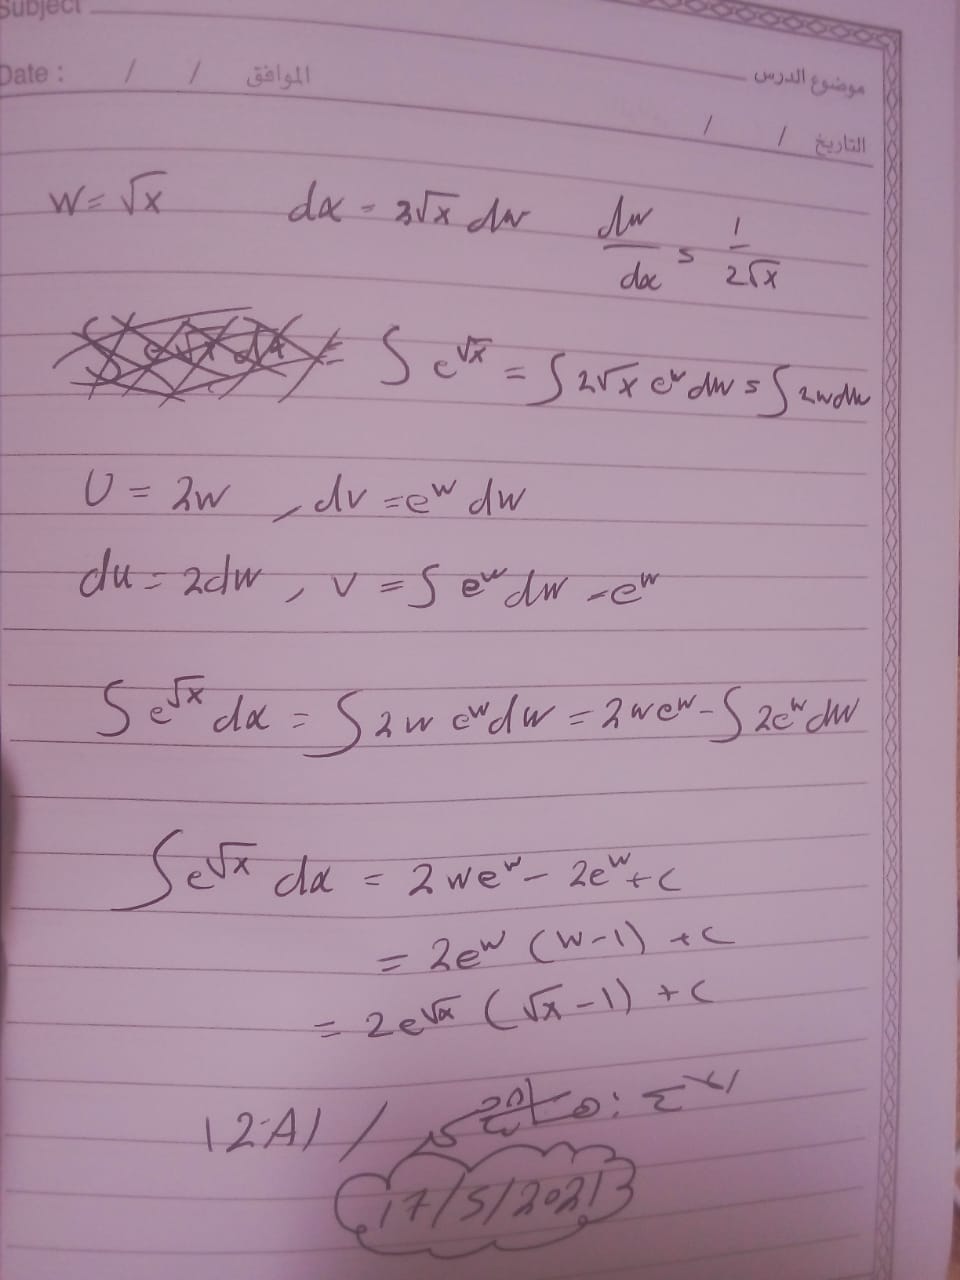 Subject
موضوع الدرس
Date : / / الموافق
التاريخ / /
w = √x dx = 2√x dw dw/dx = 1/2√x
= ∫ e^√x = ∫ 2√x e^w dw = ∫ 2w dw
U = 2w , dv = e^w dw
du = 2dw , v = ∫ e^w dw = e^w
∫ e^√x dx = ∫ 2w e^w dw = 2we^w - ∫ 2e^w dw
∫ e^√x dx = 2we^w - 2e^w + c
= 2e^w (w-1) + c
= 2e^√x (√x - 1) + c
12A1 /
17/5/2021